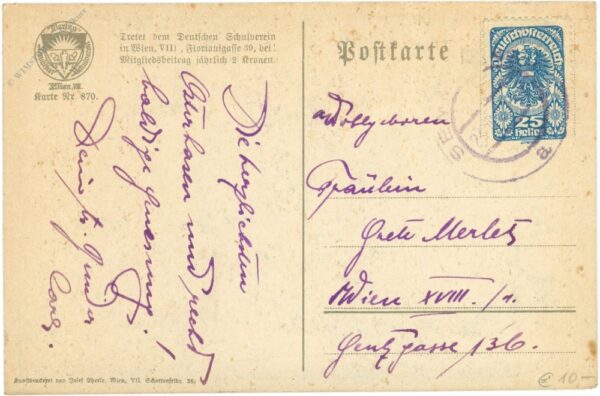 Tretet dem Deutschen Schulverein
in Wien, VIII, Florianigasse 39, bei!
Mitgliedsbeitrag jährlich 2 Kronen.
Wien, VIII.
Karte Nr. 870.
Die herzlichsten
Osterhasen und recht
baldige Genesung!
Dein tr. Bruder
Carl.
Kunstdruckerei von Josef Eberle, Wien, VII. Schottenfeldg. 38.
Postkarte
Deutschösterreich
25
Heller
Wohlgeboren
Fräulein
Grete Merlet
Wien XVIII./1.
Gentzgasse 136.
€ 10-